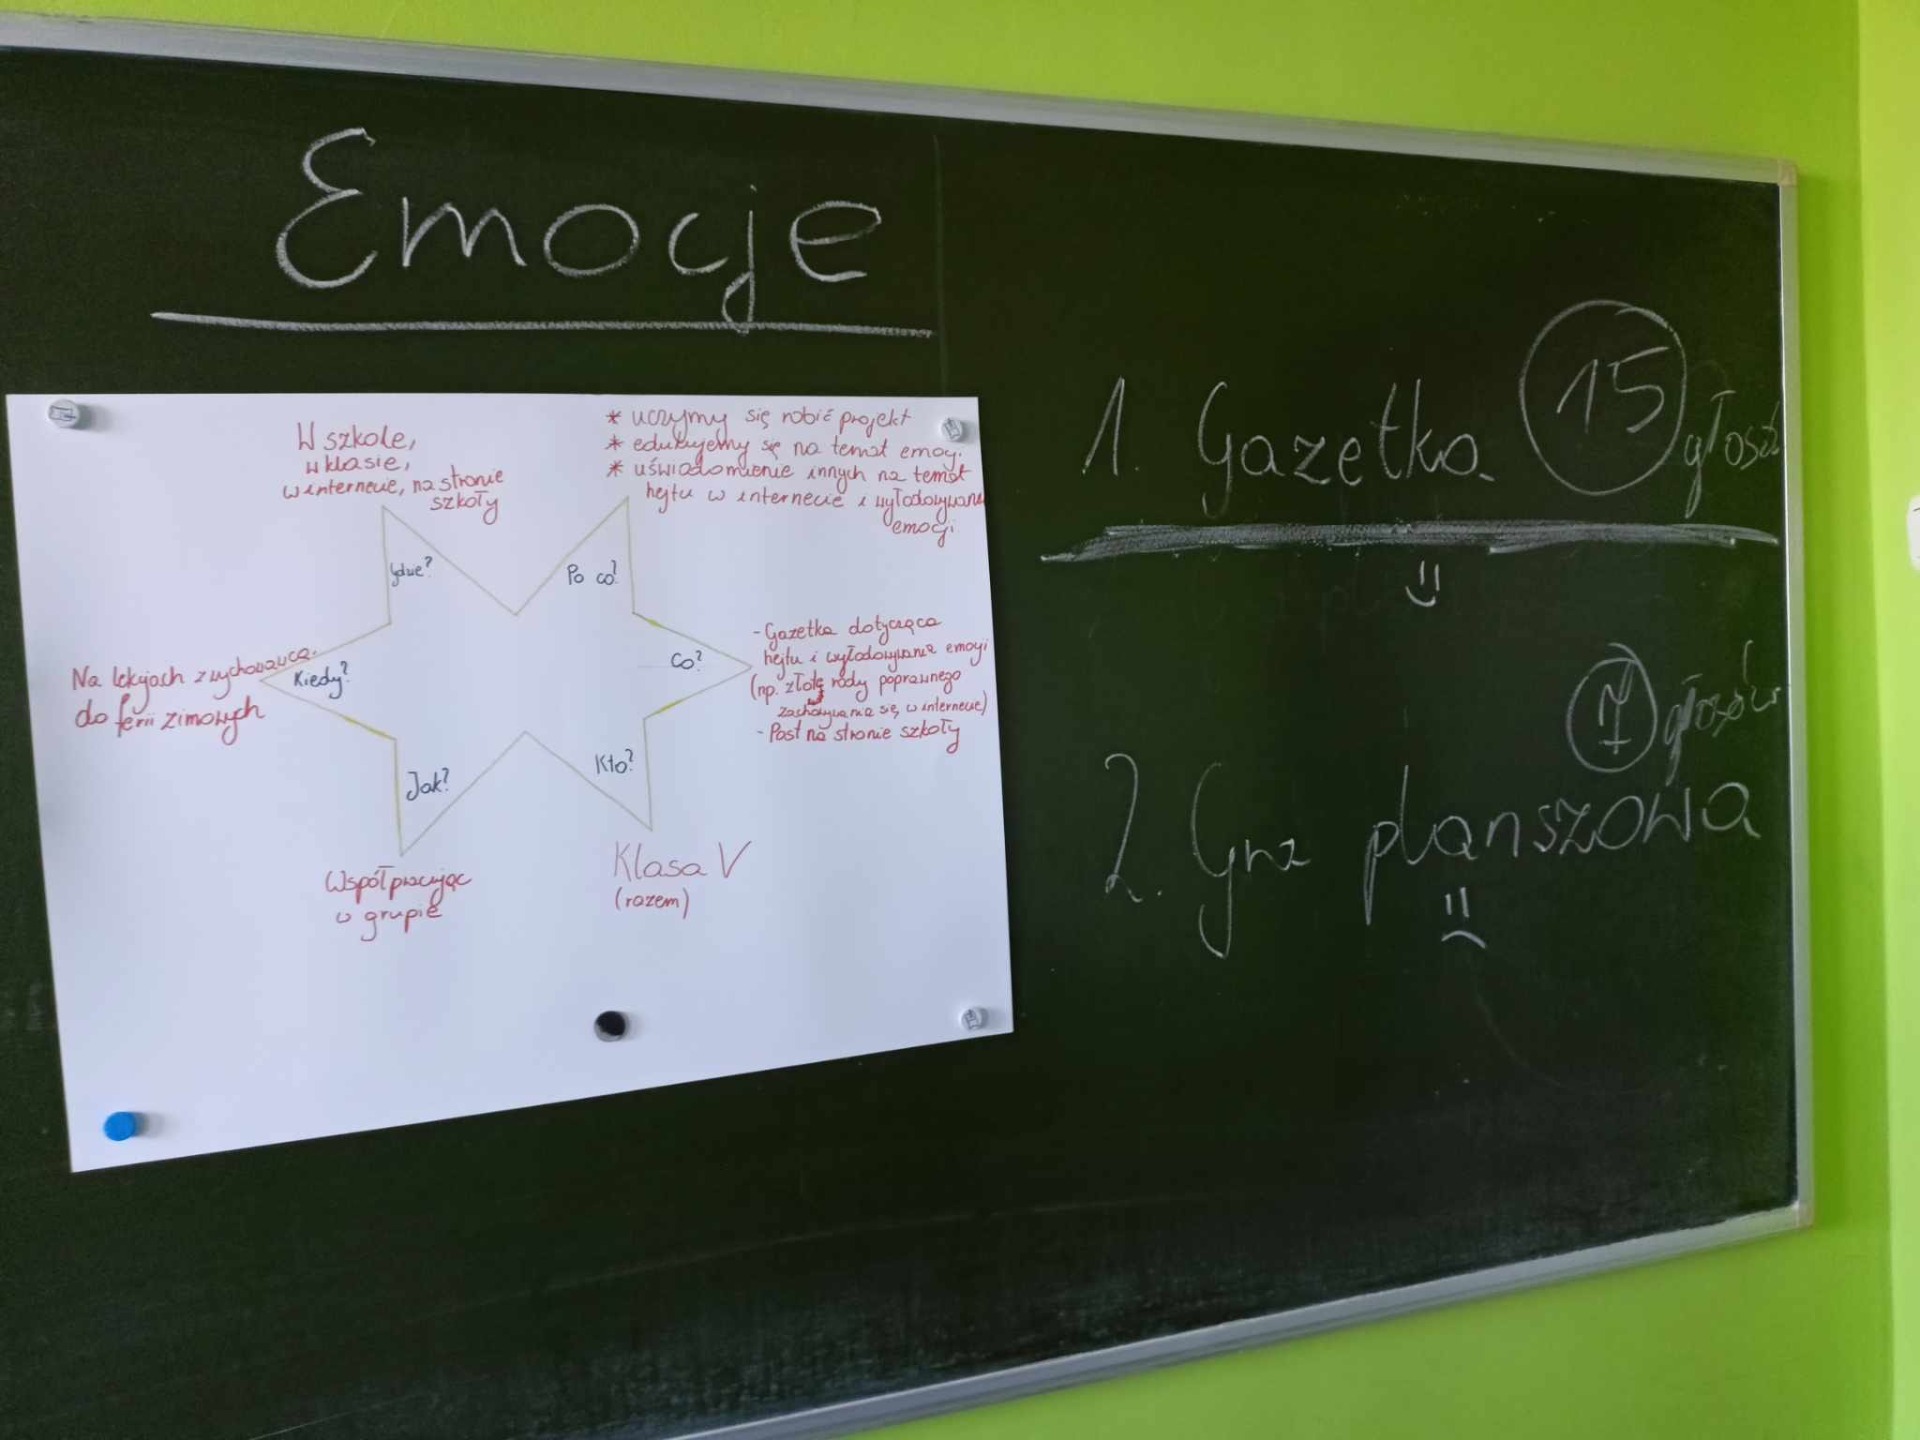 Emocje
W szkole,
w klasie,
w internecie, na stronie
szkoły
* uczymy się robić projekt
* edukujemy się na temat emocji.
* uświadomienie innych na temat
hejtu w internecie i wyładowywania
emocji
gdzie?
Po co?
Na lekcjach z wychowawcą.
do ferii zimowych
Kiedy?
Co?
- Gazetka dotycząca
hejtu i wyładowywania emocji
(np. złote rady poprawnego
zachowania się w internecie)
- Post na stronie szkoły
Jak?
Kto?
Współpracując
w grupie
Klasa V
(razem)
1. Gazetka 15
7 głosów
2. Gra planszowa